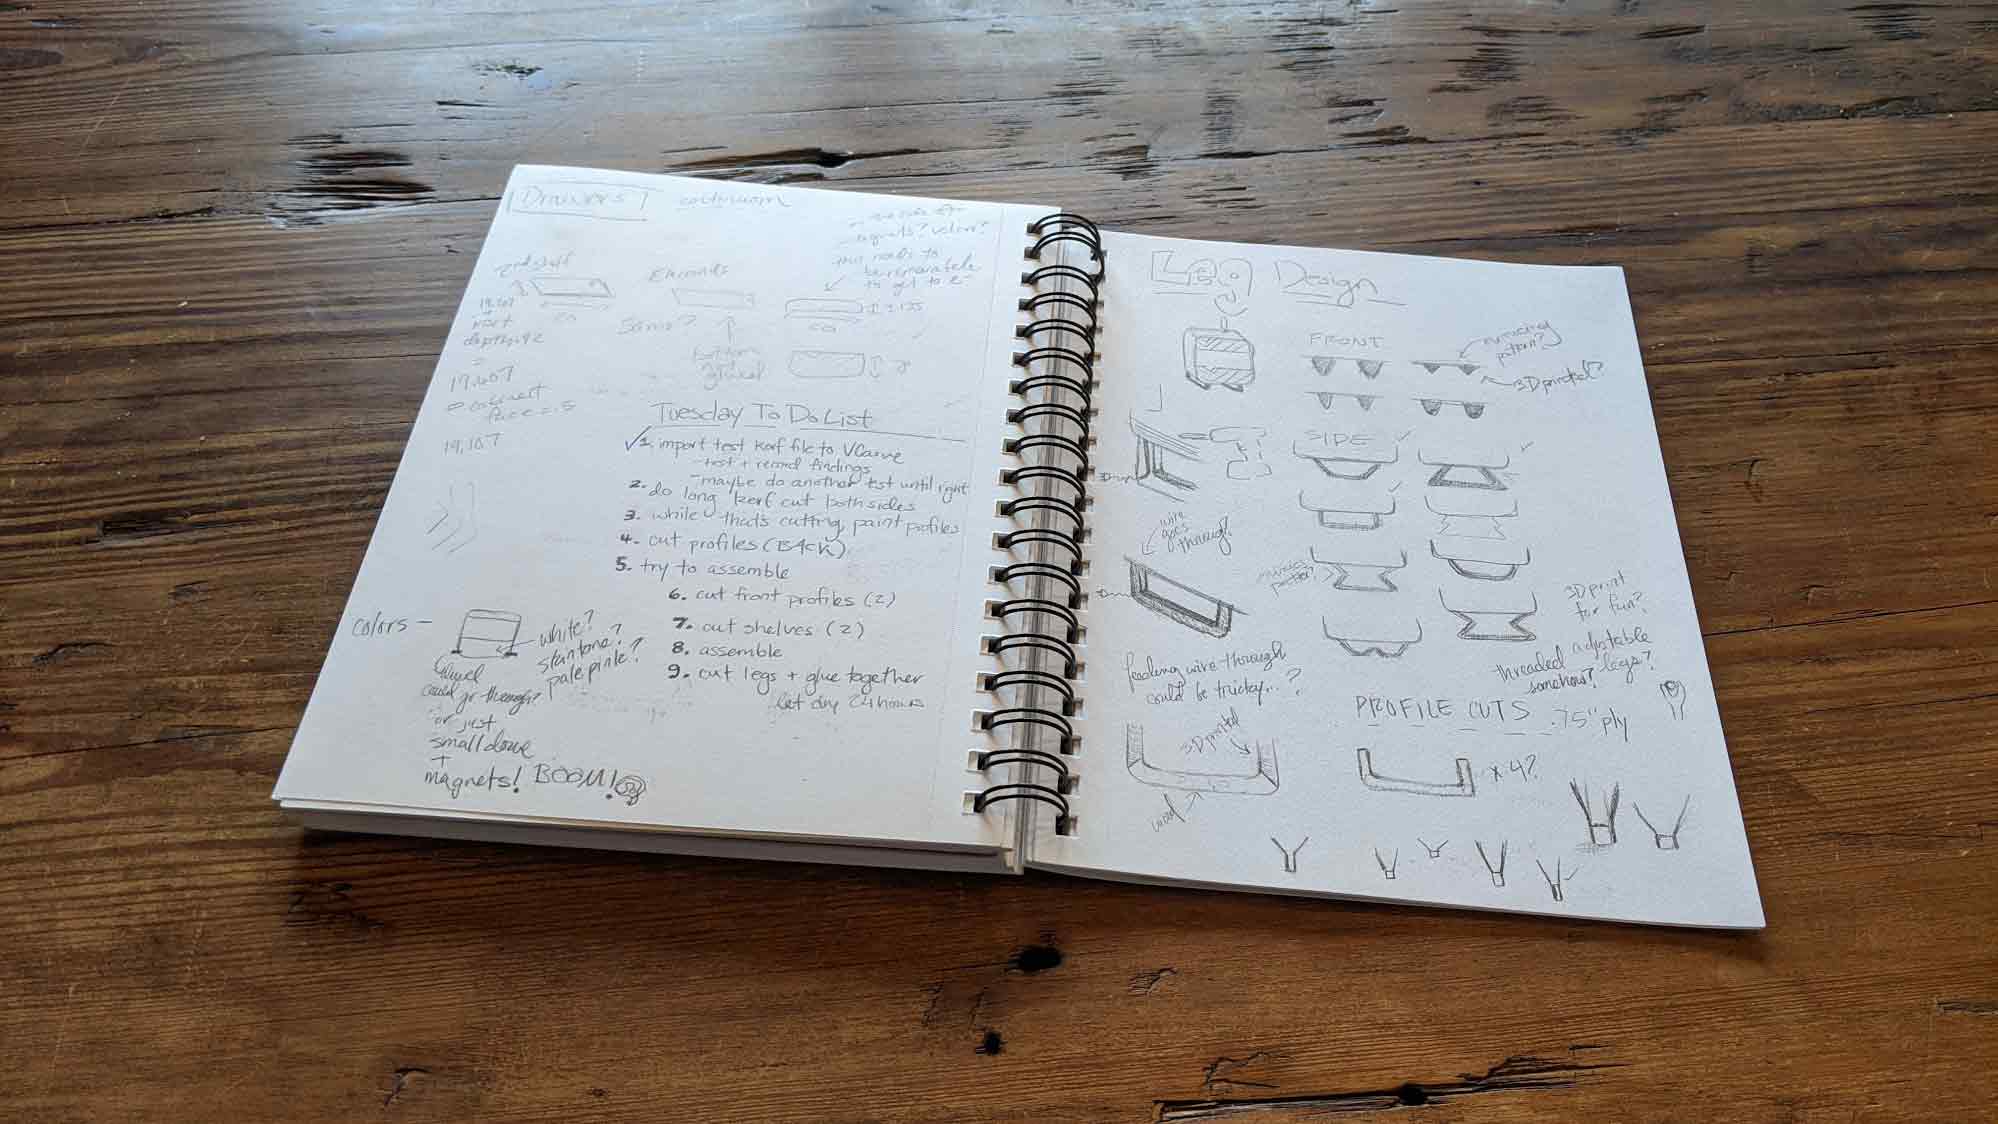 Drawers
Electronics
this needs to
be removable
to get to e-
2.125
19.107
depth
=
19.607
19.107
Same?
bottom
Tuesday To Do List
✓1. import test kerf file to VCarve
- test + record findings
- maybe do another test until right
2. do long kerf cut both sides
3. while that's cutting, paint profiles
4. cut profiles (BACK)
5. try to assemble
6. cut front profiles (2)
7. cut shelves (2)
8. assemble
9. cut legs + glue together
let dry 24 hours
colors -
white?
skintone?
pale pink?
dowel
could go through?
or just
small dowel
+
magnets! BOOM!
Leg Design
FRONT
mirroring
pattern?
3D printed?
SIDE
wire
goes
through?
3D print
for fun?
threaded adjustable
somehow? legs?
feeding wire through
could be tricky...?
PROFILE CUTS .75" ply
3D printed
wood
x 4?